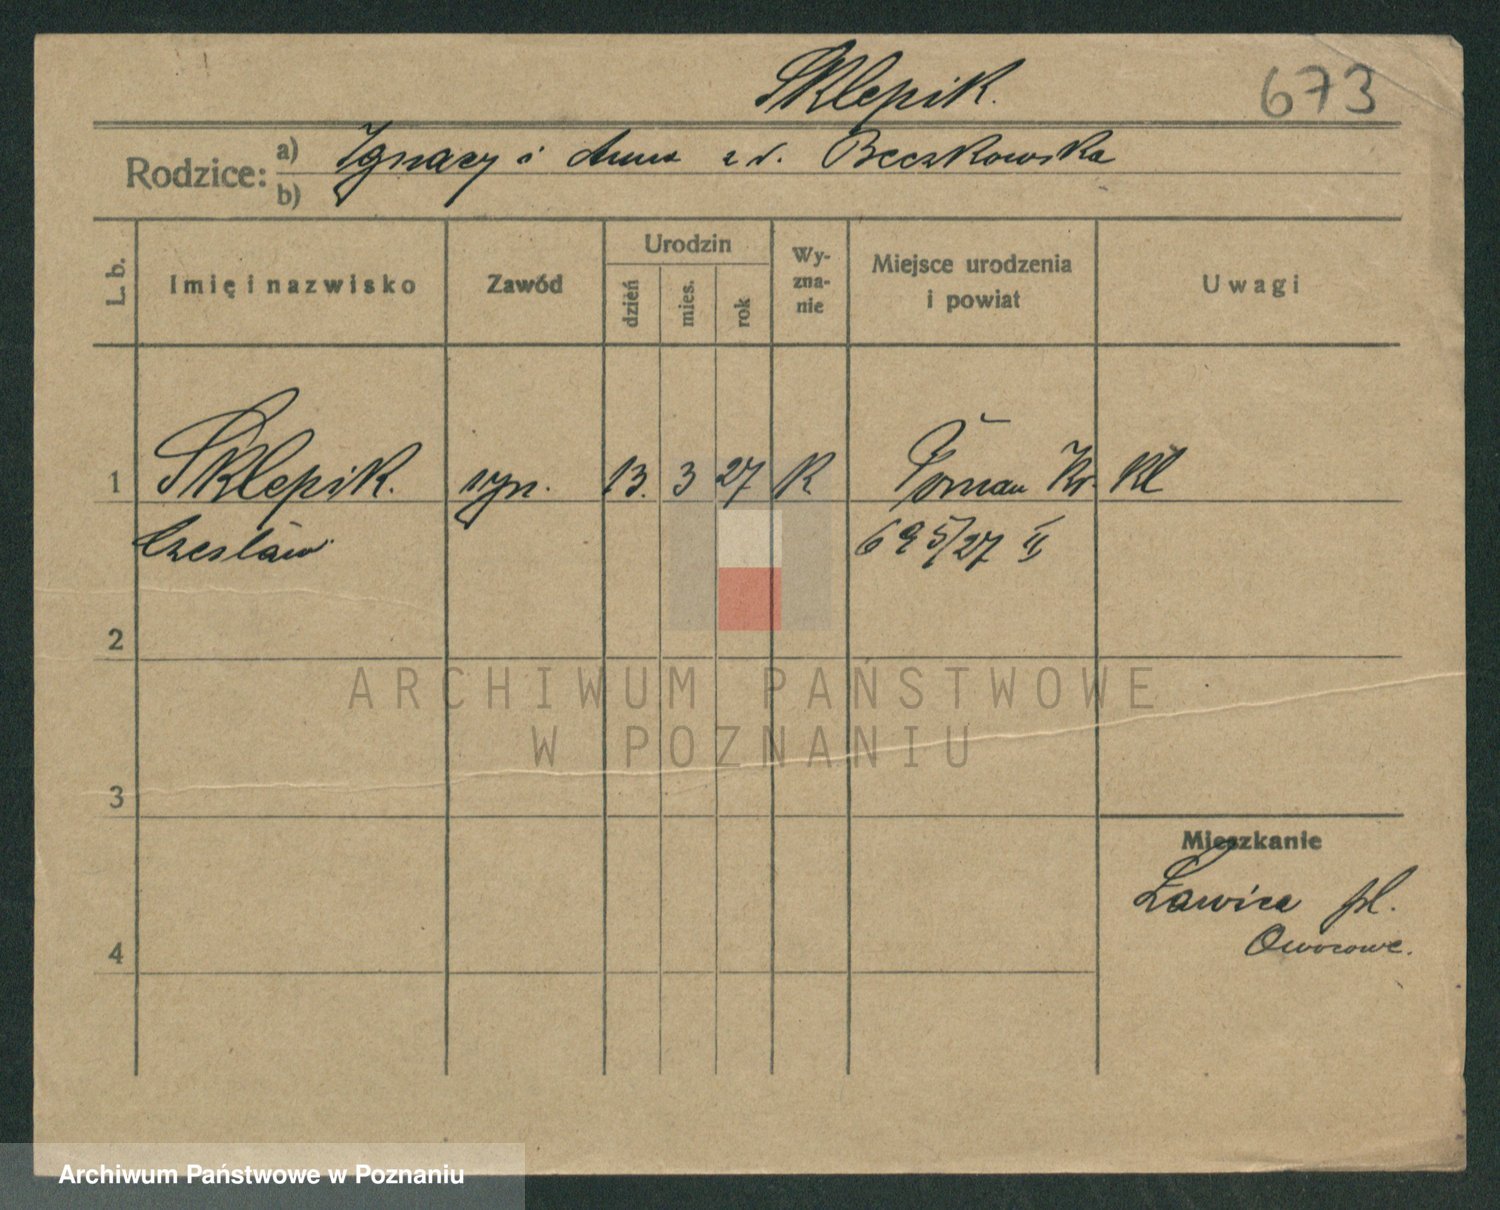 Sklepik.
673
Rodzice: a) Ignacy i Anna z d. Beczkowska
b)
L. b.
Imię i nazwisko
Zawód
Urodzin
dzień
mies.
rok
Wy-
zna-
nie
Miejsce urodzenia
i powiat
Uwagi
1 Sklepik. syn. 13. 3 27 R Poznań Kr. Kl
Czesław 695/27 II
2
3
4
Mieszkanie
Ławica pl.
Owocowe.
ARCHIWUM PAŃSTWOWE
W POZNANIU
Archiwum Państwowe w Poznaniu